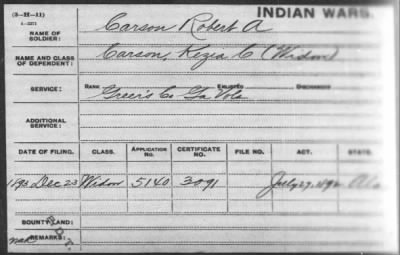 (3-H-11)
INDIAN WARS.
NAME OF SOLDIER: Carson Robert A
NAME AND CLASS OF DEPENDENT: Carson, Kezia C (Widow)
SERVICE: RANK ENLISTED DISCHARGED
Greer's Co Ga Vols
ADDITIONAL SERVICE:
DATE OF FILING. CLASS. APPLICATION NO. CERTIFICATE NO. FILE NO. ACT. STATE
1893 Dec 23 Widow 5140 3091 July 27, 1892 Ala
BOUNTY LAND:
REMARKS: